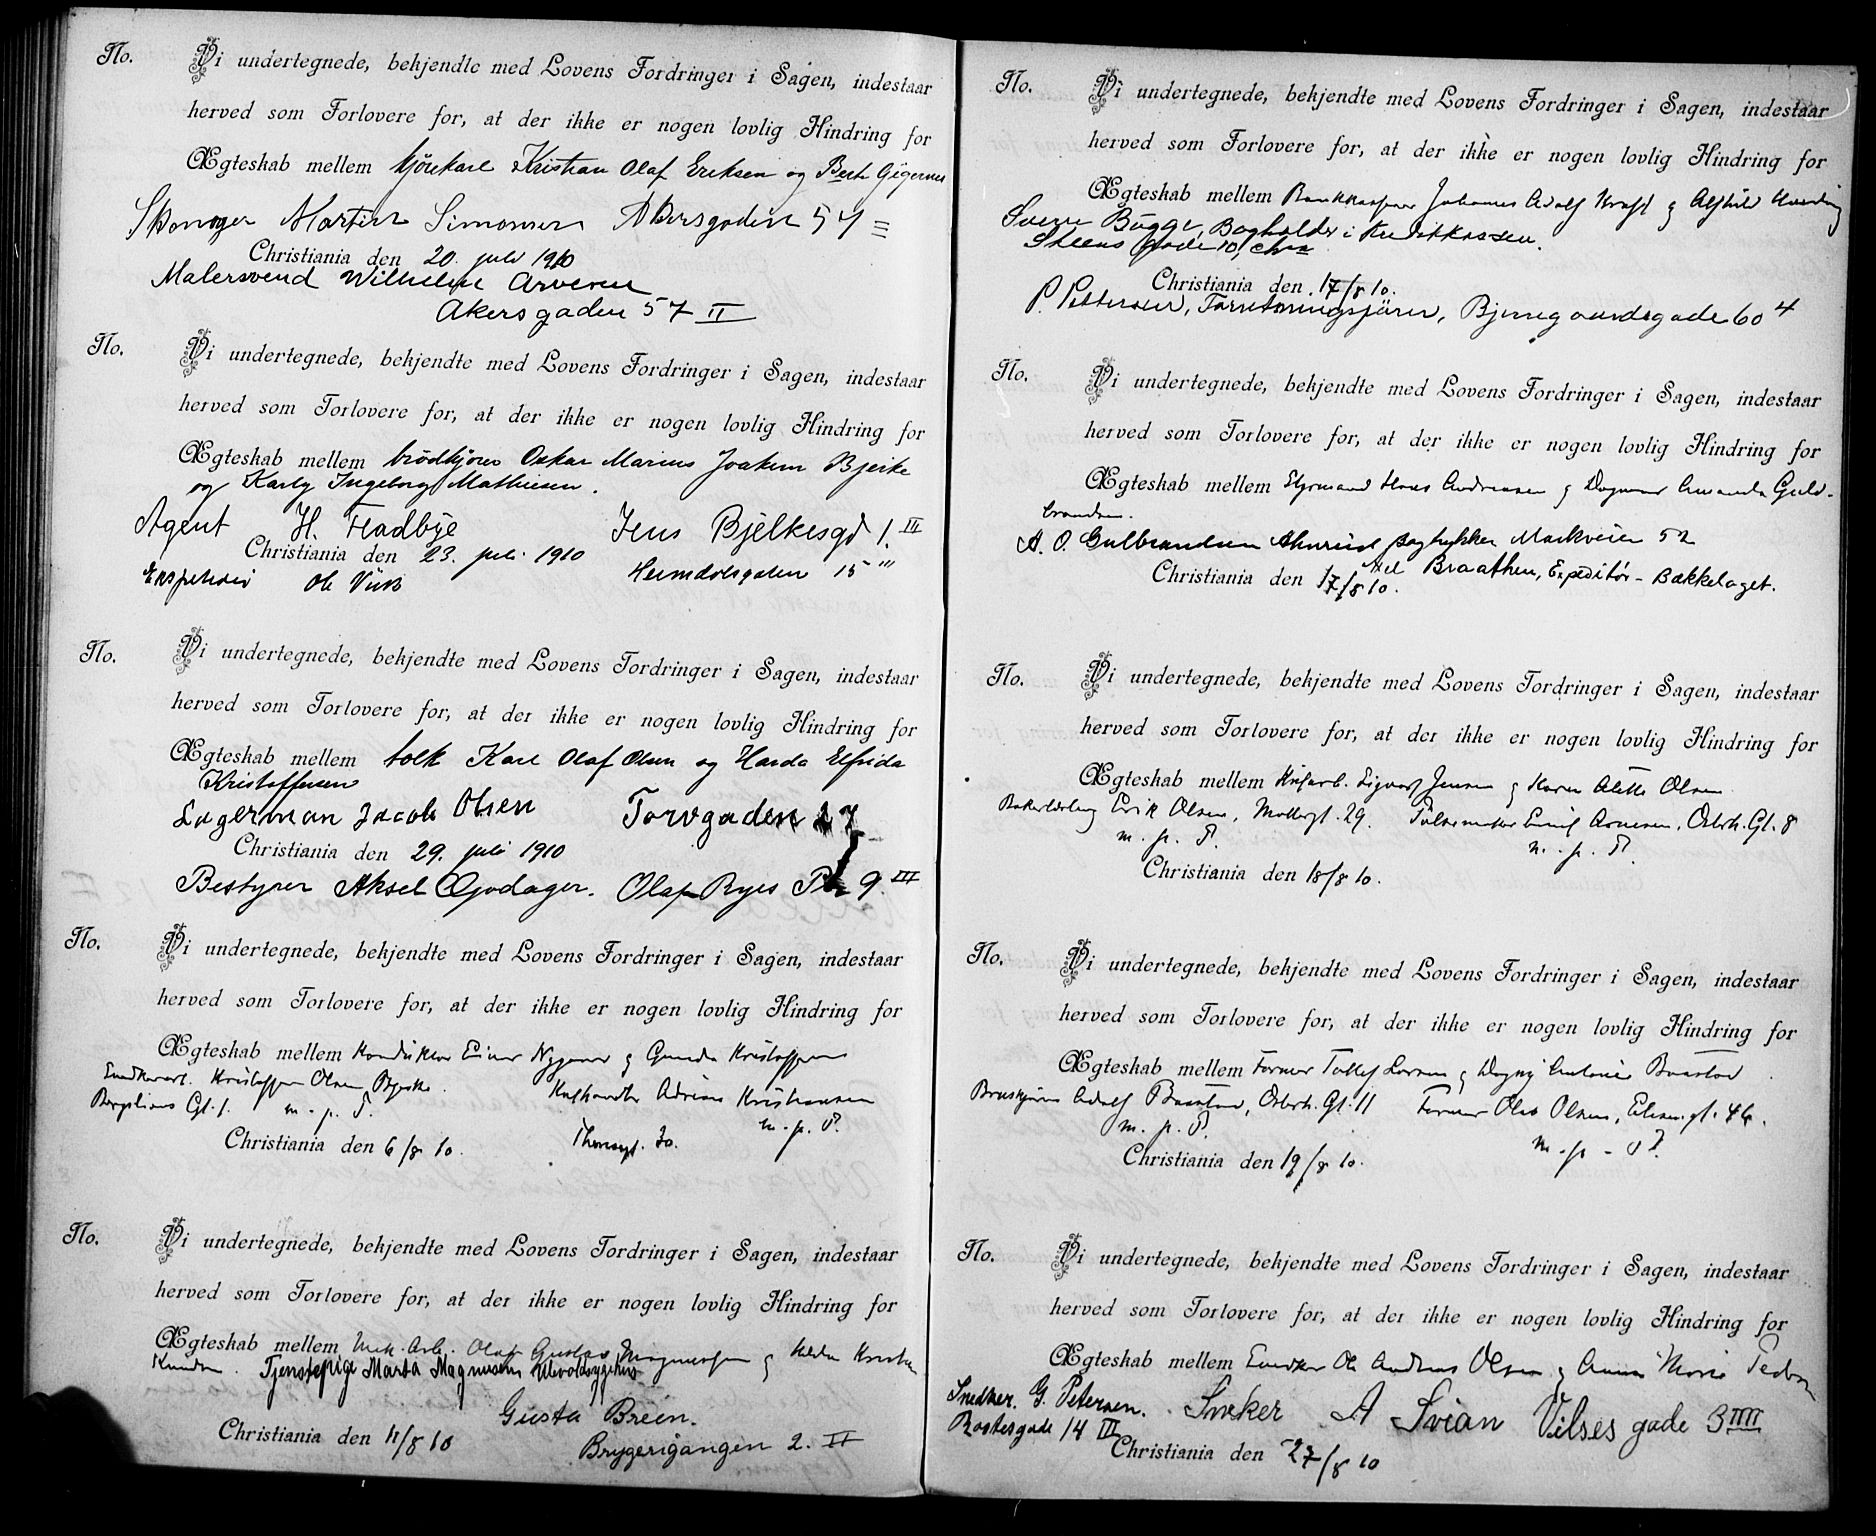 No. Vi undertegnede, bekjendte med Lovens Fordringer i Sagen, indestaar
herved som Forlovere for, at der ikke er nogen lovlig Hindring for
Ægteskab mellem kjørekarl Kristian Olaf Eriksen og
Martin Simonsen Akersgaden 54
Christiania den 20. juli 1910
Malersvend Wilhelm Arvesen
Akersgaden 57 II
No. Vi undertegnede, bekjendte med Lovens Fordringer i Sagen, indestaar
herved som Forlovere for, at der ikke er nogen lovlig Hindring for
Ægteskab mellem brødkjører Oskar Marius Joakim Bjerke
og Karly Ingeborg Mathiesen.
Agent H. Fladbye Jens Bjelkesgd 1. III
Christiania den 23. juli 1910
Ekspeditør Ole Viik Heimdalsgaden 15 '''
No. Vi undertegnede, bekjendte med Lovens Fordringer i Sagen, indestaar
herved som Forlovere for, at der ikke er nogen lovlig Hindring for
Ægteskab mellem tolk Karl Olaf Olsen og Harda Elfrida
Kristoffersen
Lagerman Jacob Olsen Torvgaden 27
Christiania den 29. juli 1910
Bestyrer Aksel Opdager. Olaf Ryes Pl 9 III
No. Vi undertegnede, bekjendte med Lovens Fordringer i Sagen, indestaar
herved som Forlovere for, at der ikke er nogen lovlig Hindring for
Ægteskab mellem Konduktør Einar Nygaard & Gunda Kristoffersen
Kristoffer Olsen Bjerke. Adrian Kristiansen
Gt. 1. m. p. P. m. p. P.
Christiania den 6/8 10. 30.
No. Vi undertegnede, bekjendte med Lovens Fordringer i Sagen, indestaar
herved som Forlovere for, at der ikke er nogen lovlig Hindring for
Ægteskab mellem Mek. Arb. Olaf Gustav Magnussen & Hilda Kristine
Knudsen. Tjenstepige Marta Magnusen Ulevoldsygehus
Gusta Breen.
Christiania den 11/8 10 Bryggerigangen 2. II
No. Vi undertegnede, bekjendte med Lovens Fordringer i Sagen, indestaar
herved som Forlovere for, at der ikke er nogen lovlig Hindring for
Ægteskab mellem Bankkasserer Johannes Adolf Kraft & Alfhild
Sverre Bugge, Bogholder i Kreditkassen.
Steens gade 10, Chra
Christiania den 17/8 10.
P. Pettersen, Forretningsfører, Bjerregaardsgade 60 4
No. Vi undertegnede, bekjendte med Lovens Fordringer i Sagen, indestaar
herved som Forlovere for, at der ikke er nogen lovlig Hindring for
Ægteskab mellem Styrmand Hans Andreasen & Dagmar Amanda Guld-
brandsen.
A. O. Gulbrandsen Bogtrykker Markveien 52
Christiania den 17/8 10. Braathen, Expeditør - Bækkelaget.
No. Vi undertegnede, bekjendte med Lovens Fordringer i Sagen, indestaar
herved som Forlovere for, at der ikke er nogen lovlig Hindring for
Ægteskab mellem Sigvart Jensen & Karen Alette Olsen
Bakerlærling Erik Olsen, Møllergt. 29. Pølsemaker Emil Arnesen, Osterh. Gt. 8
m. p. P. m. p. P.
Christiania den 18/8 10.
No. Vi undertegnede, bekjendte med Lovens Fordringer i Sagen, indestaar
herved som Forlovere for, at der ikke er nogen lovlig Hindring for
Ægteskab mellem Former Tollef Larsen & Dagny Antonie Baastad
Bruskjører Adolf Baastad, Osterh. Gt. 11 Former Olav Olsen, gt. 46.
m. p. P. m. p. P.
Christiania den 19/8 10.
No. Vi undertegnede, bekjendte med Lovens Fordringer i Sagen, indestaar
herved som Forlovere for, at der ikke er nogen lovlig Hindring for
Ægteskab mellem Snedker Ole Andreas Olsen & Anna Marie
Snedker. G. Petersen. Snker A Svian Vilses gade 3 IIII
gade 14 III
Christiania den 27/8 10